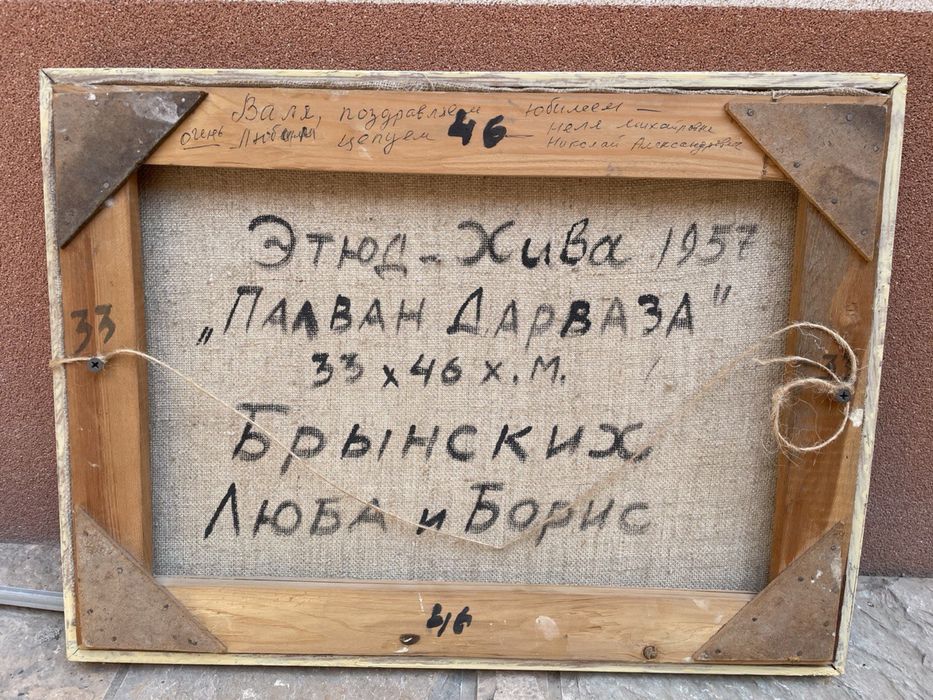 Валя, поздравляем юбилеем —
очень Любим целуем — Неля Михайловна
46 Николай Александрович
Этюд - Хива 1957
„Палван Дарваза"
33 х 46 х. м.
33
Брынских
Люба и Борис
46